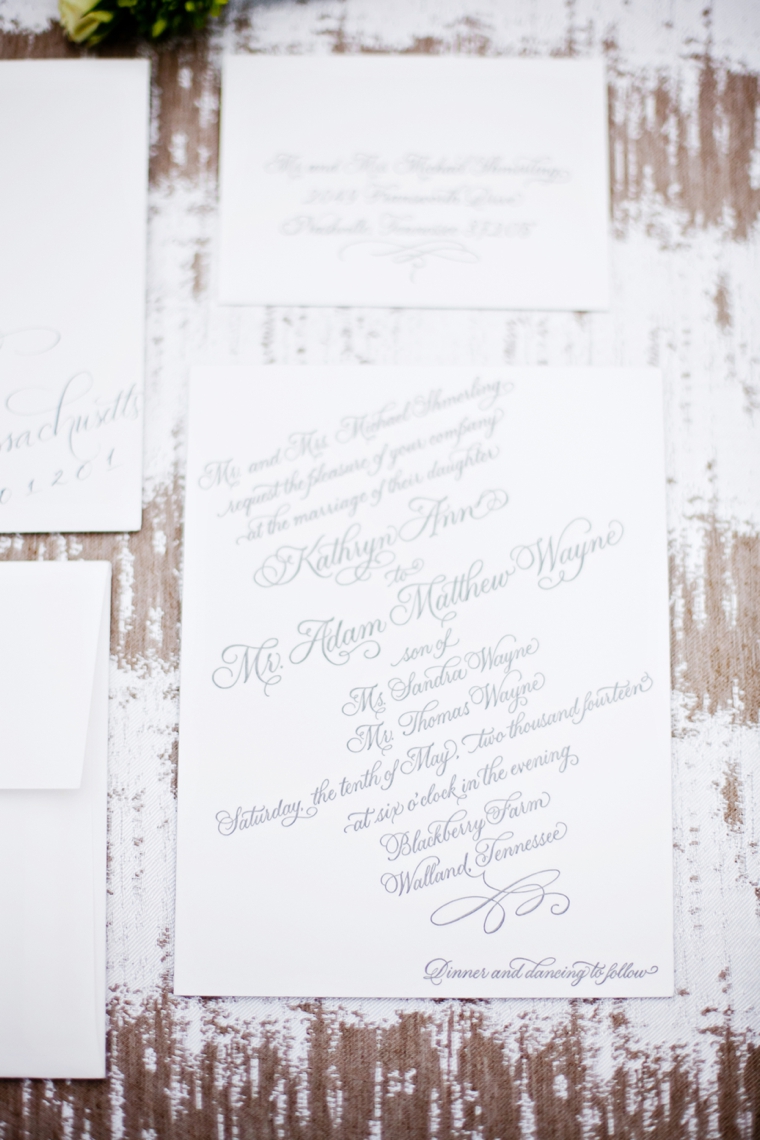 Mr. and Mrs. Michael Shmerling
Nashville, Tennessee
sachusetts
01201
Mr. and Mrs. Michael Shmerling
request the pleasure of your company
at the marriage of their daughter
Kathryn Ann
to
Mr. Adam Matthew Wayne
son of
Ms. Sandra Wayne
Mr. Thomas Wayne
Saturday, the tenth of May, two thousand fourteen
at six o'clock in the evening
Blackberry Farm
Walland, Tennessee
Dinner and dancing to follow